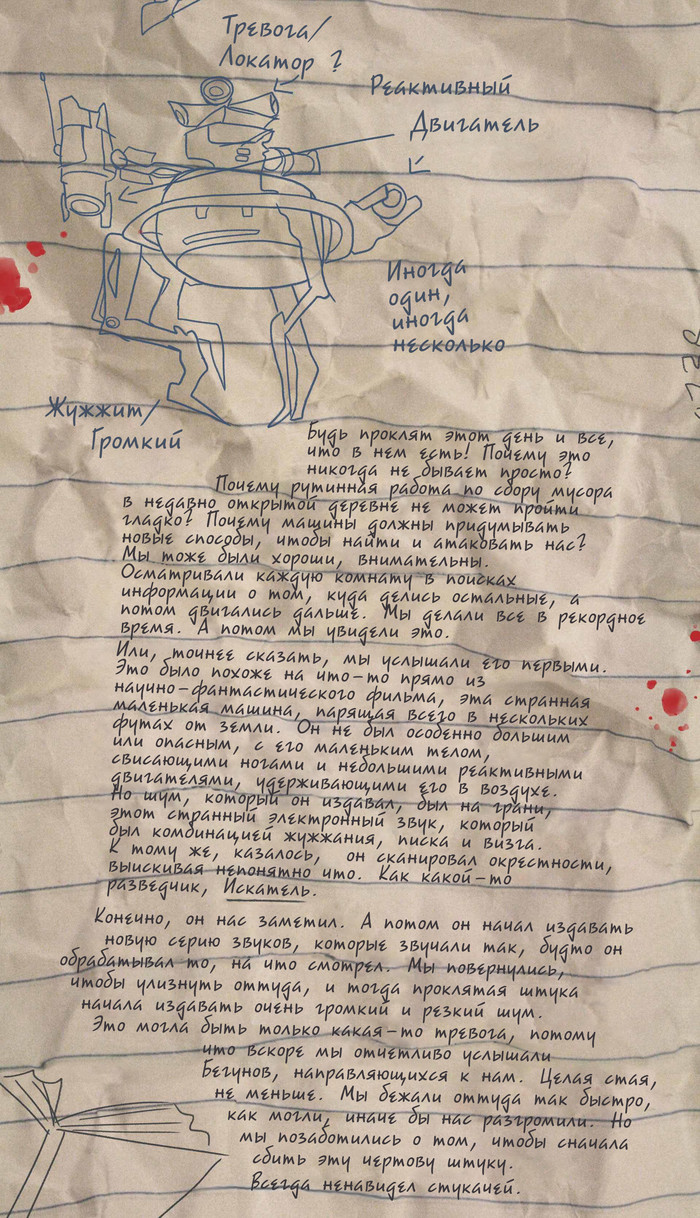 Тревога/
Локатор ?
Реактивный
Двигатель
Иногда
один,
иногда
несколько
Жужжит/
Громкий
Будь проклят этот день и все,
что в нем есть! Почему это
никогда не бывает просто?
Почему рутинная работа по сбору мусора
в недавно открытой деревне не может пройти
гладко? Почему машины должны придумывать
новые способы, чтобы найти и атаковать нас?
Мы тоже были хороши, внимательны.
Осматривали каждую комнату в поисках
информации о том, куда делись остальные, а
потом двигались дальше. Мы делали все в рекордное
время. А потом мы увидели это.
Или, точнее сказать, мы услышали его первыми.
Это было похоже на что-то прямо из
научно-фантастического фильма, эта странная
маленькая машина, парящая всего в нескольких
футах от земли. Он не был особенно большим
или опасным, с его маленьким телом,
свисающими ногами и небольшими реактивными
двигателями, удерживающими его в воздухе.
Но шум, который он издавал, был на грани,
этот странный электронный звук, который
был комбинацией жужжания, писка и визга.
К тому же, казалось, он сканировал окрестности,
выискивая непонятно что. Как какой-то
разведчик, Искатель.
Конечно, он нас заметил. А потом он начал издавать
новую серию звуков, которые звучали так, будто он
обрабатывал то, на что смотрел. Мы повернулись,
чтобы улизнуть оттуда, и тогда проклятая штука
начала издавать очень громкий и резкий шум.
Это могла быть только какая-то тревога, потому
что вскоре мы отчетливо услышали
Бегунов, направляющихся к нам. Целая стая,
не меньше. Мы бежали оттуда так быстро,
как могли, иначе бы нас разгромили. Но
мы позаботились о том, чтобы сначала
сбить эту чертову штуку.
Всегда ненавидел стукачей.